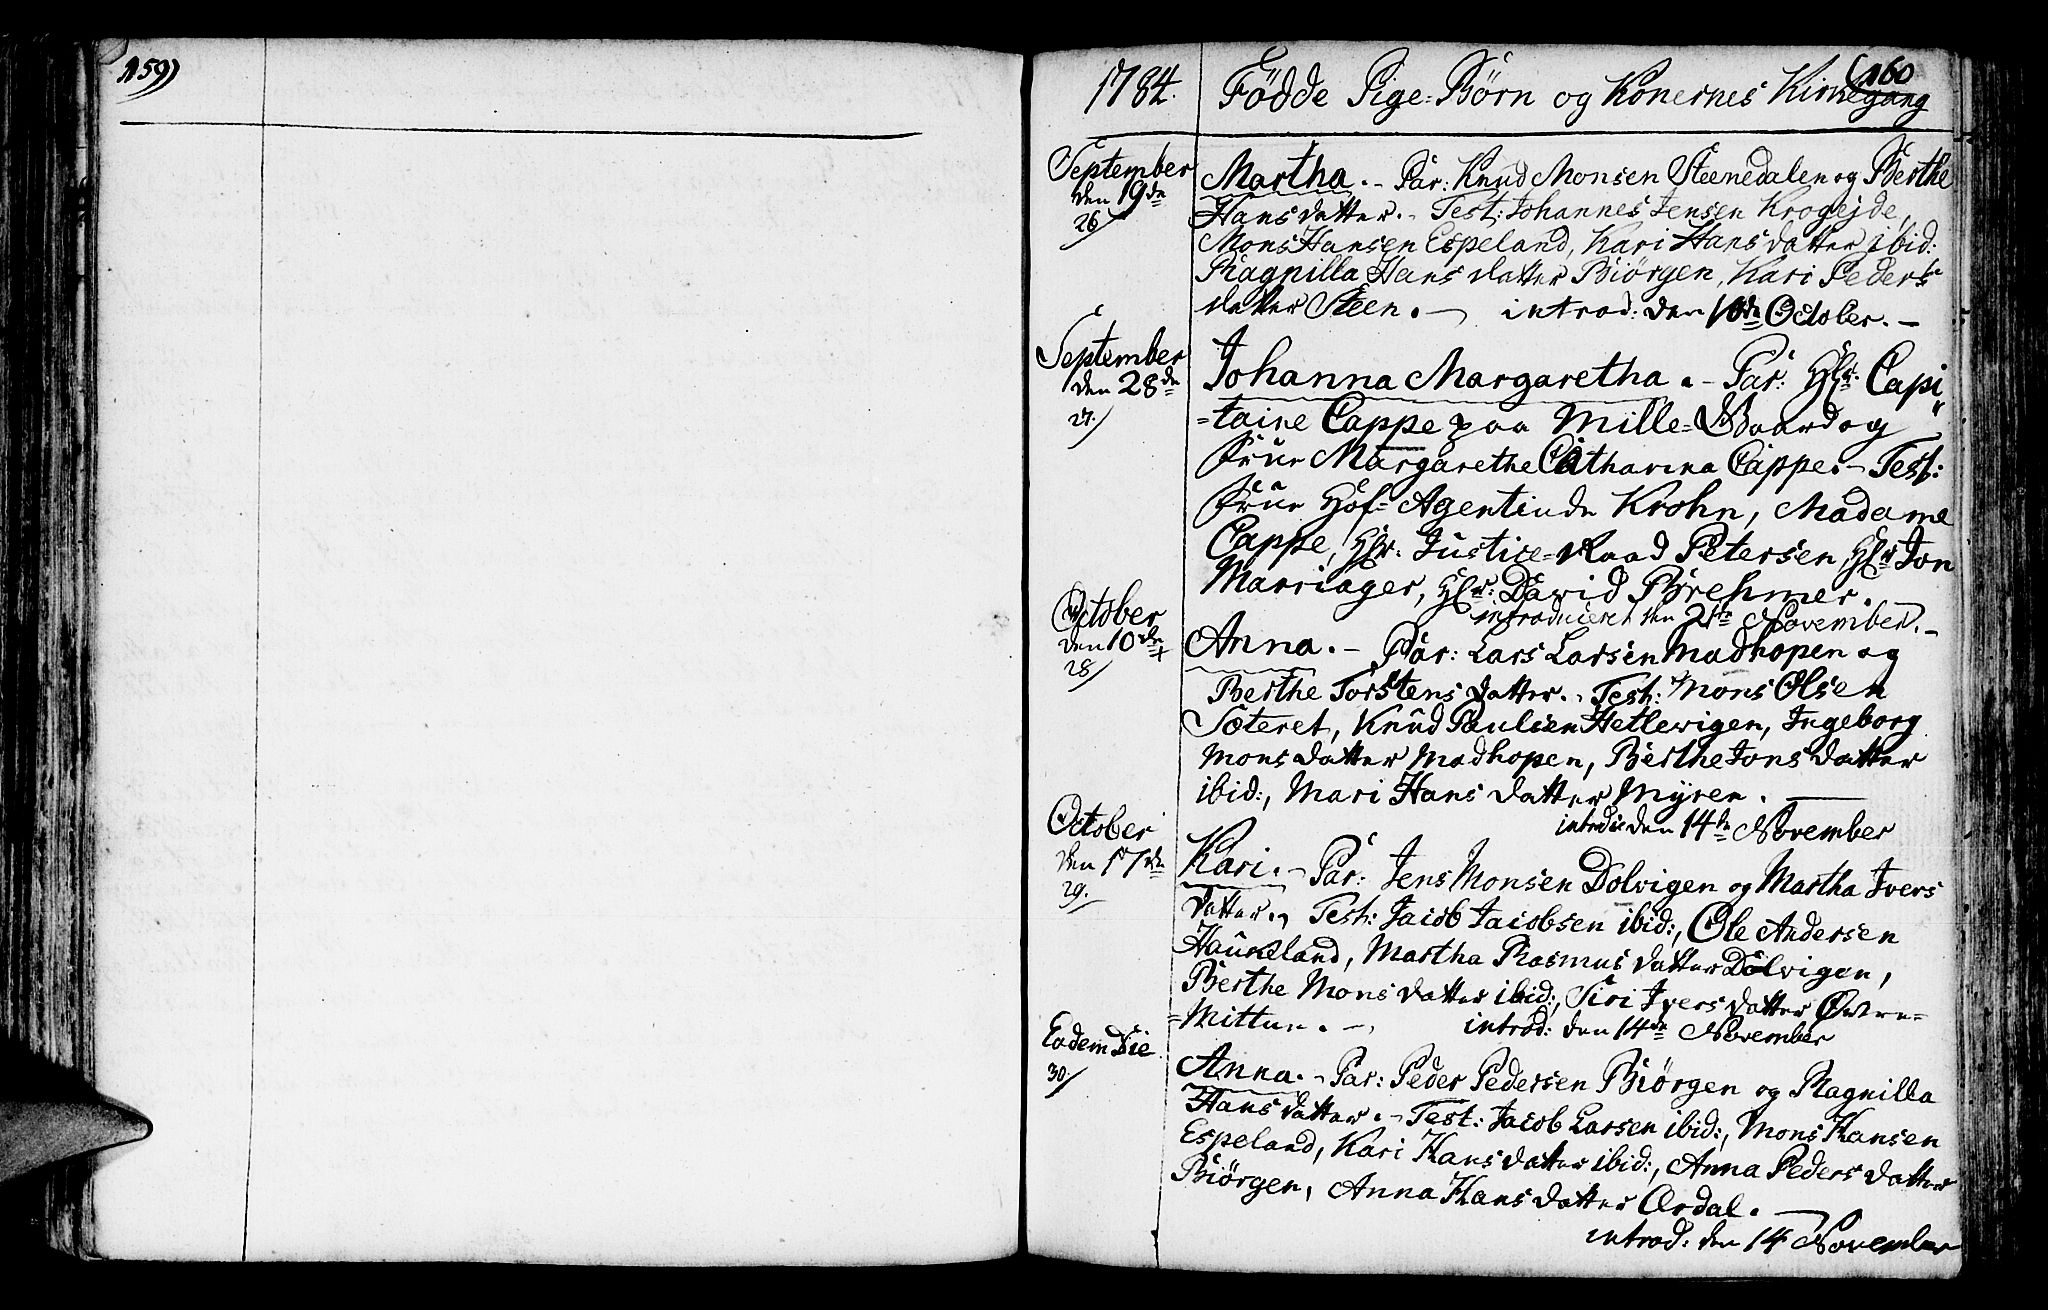 159)
(160
1784. Fødde Pige-Børn og Konernes Kirkegang
September
den 19de
26
Martha. - Par: Knud Monsen Steenedalen og Berthe
Hans datter. - Test: Johannes Jensen Krogejde,
Mons Hansen Espeland, Kari Hans datter ibid:
Ragnilla Hans datter Biørgen, Kari Peders
datter Steen. - introd: den 10de October. -
September
den 28de
27.
Johanna Margaretha. - Par: Hr: Capi
-taine Cappe paa Mille-Gaard og
Frue Margarethe Catharina Cappe. - Test:
Frue Hof-Agentinde Krohn, Madame
Cappe, Hr: Justice-Raad Petersen, Hr: Jon
Marriager, Hr: David Brehmer.
introduceret den 21de November. -
October
den 10de
28
Anna. - Par: Lars Larsen Madhopen og
Berthe Torstens datter. - Test: Mons Olsen
Sæteret, Knud Paulsen Hetlevigen, Ingeborg
Mons datter Madhopen, Berthe Jons datter
ibid:, Mari Hans datter Myren.
introd: den 14de November
October
den 17de
29.
Kari. - Par: Jens Monsen Dolvigen og Martha Ivers
datter. - Test: Jacob Jacobsen ibid:, Ole Andersen
Haukeland, Martha Rasmus datter Dolvigen,
Berthe Mons datter ibid:, Siri Ivers datter Øvre-
-Mittun. - introd: den 14de November
Eodem Die
30.
Anna. - Par: Peder Pedersen Biørgen og Ragnilla
Hans datter. - Test: Jacob Larsen ibid:, Mons Hansen
Espeland, Kari Hans datter ibid:, Anna Peders datter
Biørgen, Anna Hans datter Ardal. -
introd: den 14 November